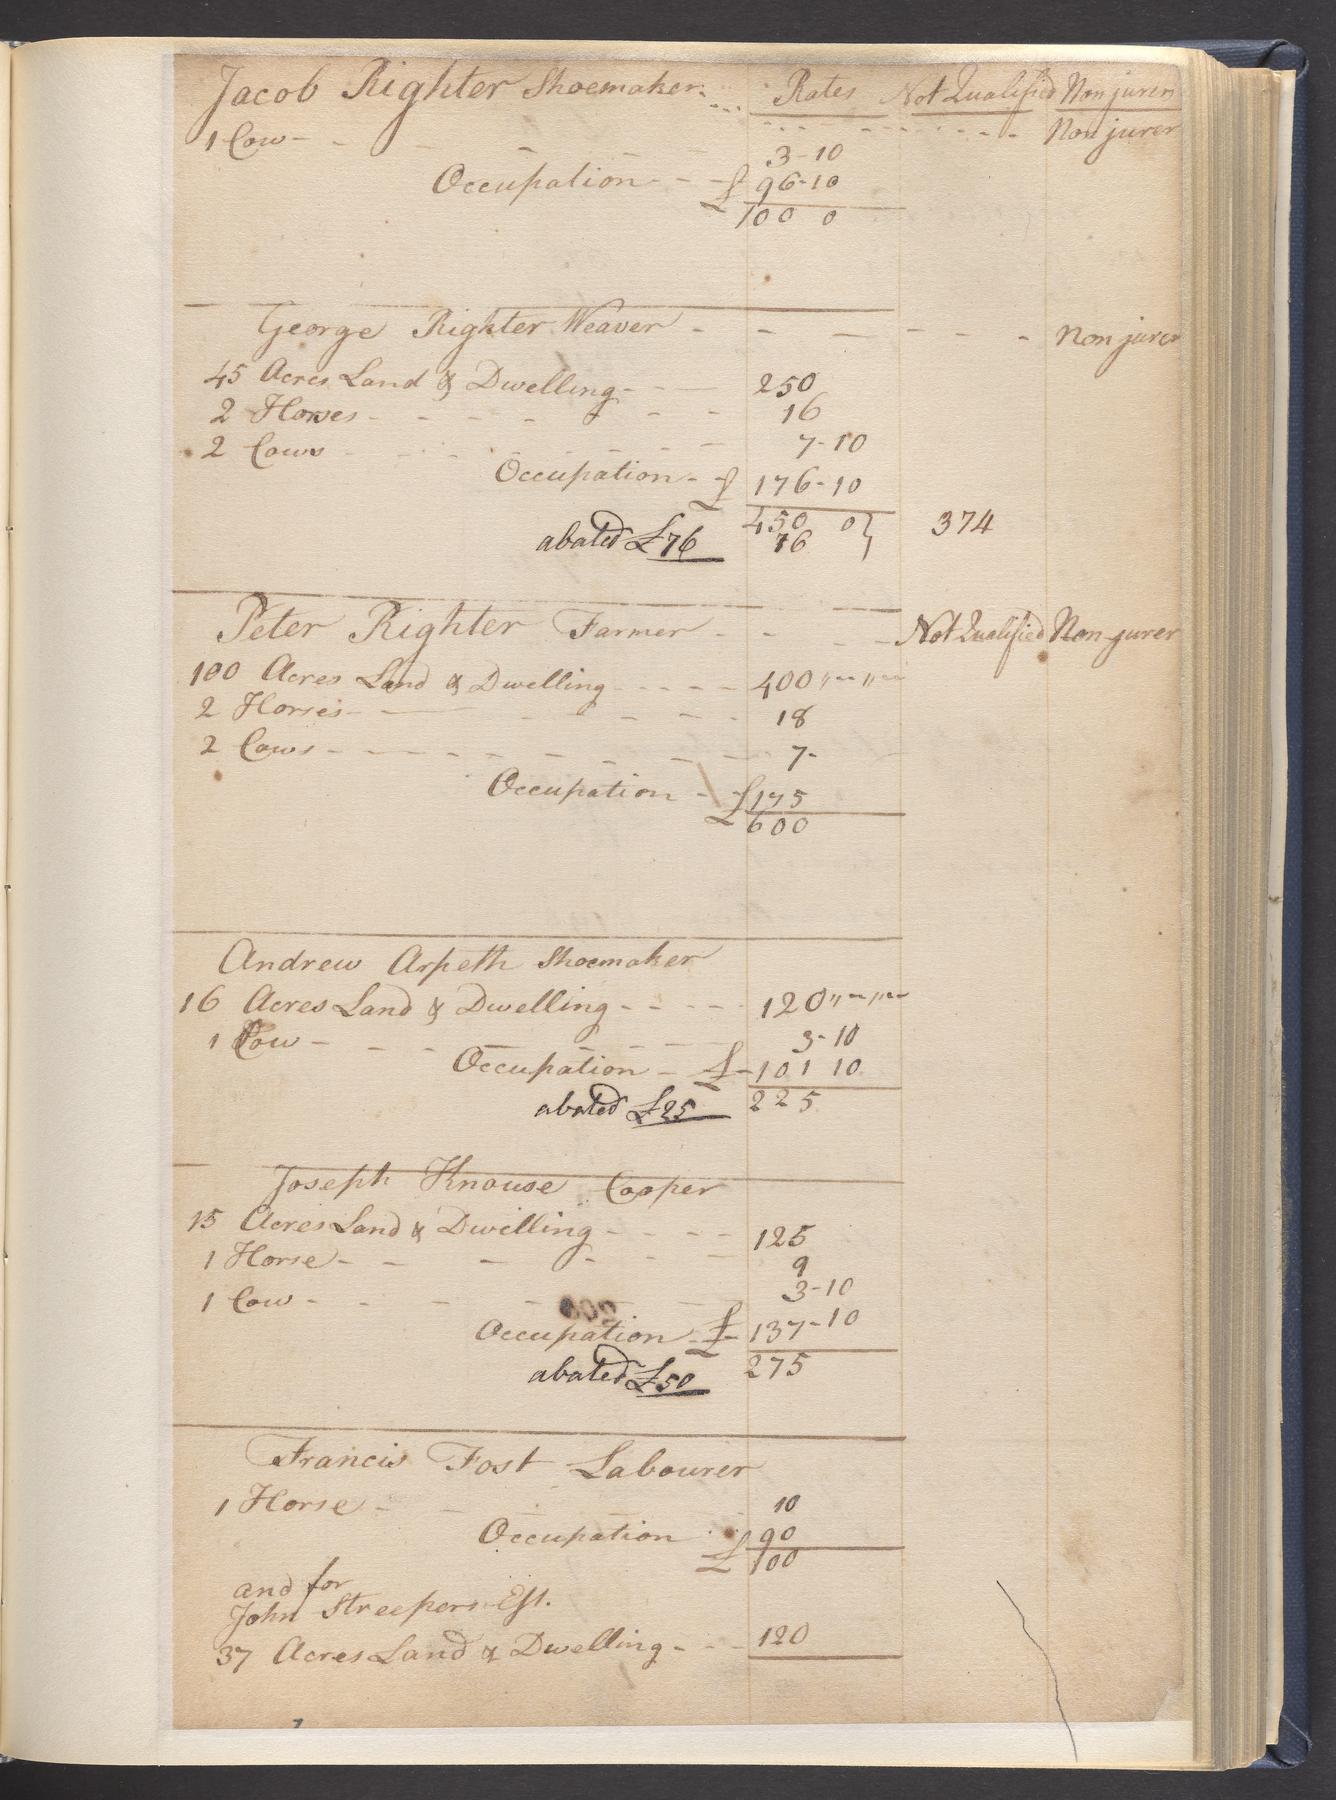 Jacob Righter Shoemaker Rates Not Qualified Nonjurers
1 Cow - - - - - Nonjurer
3-10
Occupation - - £ 96-10
100 0
George Righter Weaver - - - - - - Nonjurer
45 Acres Land & Dwelling - - - 250
2 Horses - - - - - - 16
2 Cows - - - - - 7-10
Occupation - £ 176-10
450 0 } 374
abated £76 76
Peter Righter Farmer - - - - Not Qualified Non-jurer
100 Acres Land & Dwelling - - - - 400
2 Horses - - - - - - 18
2 Cows - - - - - - - 7-
Occupation - £ 175
600
Andrew Arpeth Shoemaker
16 Acres Land & Dwelling - - - - 120
1 Cow - - - - - - 3-10
Occupation - £ 101 10
abated £25 225
Joseph Knouse Cooper
15 Acres Land & Dwelling - - - - 125
1 Horse - - - - - 9
1 Cow - - - - - 3-10
Occupation £ 137-10
abated £50 275
Francis Fost Labourer
1 Horse - - 10
Occupation 90
£ 100
and for
John Streepers Est.
37 Acres Land & Dwelling - - - 120